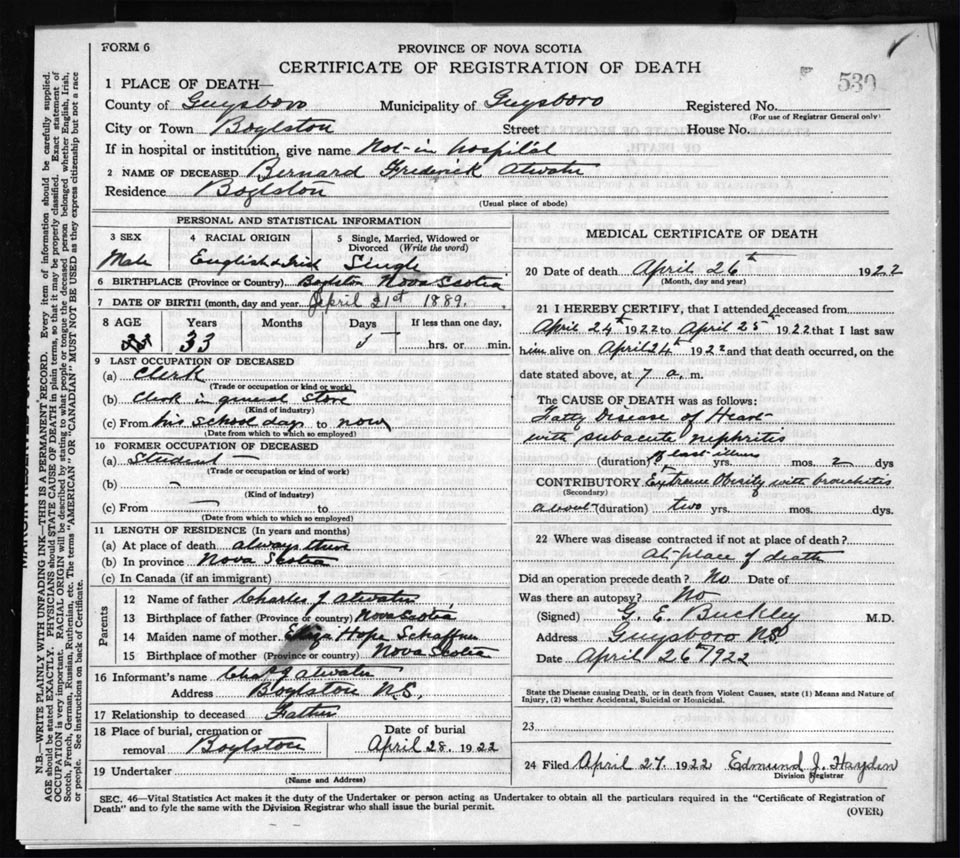 FORM 6
PROVINCE OF NOVA SCOTIA
CERTIFICATE OF REGISTRATION OF DEATH
530
1 PLACE OF DEATH—
County of Guysboro Municipality of Guysboro Registered No.
(For use of Registrar General only)
City or Town Boylston Street House No.
If in hospital or institution, give name Not in hospital
2 NAME OF DECEASED Bernard Frederick Atwater
Residence Boylston
(Usual place of abode)
PERSONAL AND STATISTICAL INFORMATION
3 SEX 4 RACIAL ORIGIN 5 Single, Married, Widowed or
Divorced (Write the word)
Male English & Irish Single
6 BIRTHPLACE (Province or Country) Boylston Nova Scotia
7 DATE OF BIRTH (month, day and year) April 21st 1889.
8 AGE Years Months Days If less than one day,
33 5 hrs. or min.
9 LAST OCCUPATION OF DECEASED
(a) Clerk
(Trade or occupation or kind of work)
(b) Clerk in general Store
(Kind of industry)
(c) From his school days to now
(Date from which to which so employed)
10 FORMER OCCUPATION OF DECEASED
(a) Student —
(Trade or occupation or kind of work)
(b) —
(Kind of industry)
(c) From — to
(Date from which to which so employed)
11 LENGTH OF RESIDENCE (In years and months)
(a) At place of death always there
(b) In province Nova Scotia
(c) In Canada (if an immigrant)
Parents
12 Name of father Charles J Atwater
13 Birthplace of father (Province or country) Nova Scotia
14 Maiden name of mother Eliza Hope Schaffner
15 Birthplace of mother (Province or country) Nova Scotia
16 Informant's name Chas J Atwater
Address Boylston N.S.
17 Relationship to deceased Father
18 Place of burial, cremation or Date of burial
removal Boylston April 28. 1922
19 Undertaker
(Name and Address)
MEDICAL CERTIFICATE OF DEATH
20 Date of death April 26th 1922
(Month, day and year)
21 I HEREBY CERTIFY, that I attended deceased from
April 24th 1922 to April 25th 1922 that I last saw
him alive on April 24th 1922 and that death occurred, on the
date stated above, at 7 a. m.
The CAUSE OF DEATH was as follows:
Fatty Disease of Heart
with subacute nephritis
(duration) of last illness yrs. mos. 2 dys
CONTRIBUTORY Extreme Obesity with bronchitis
(Secondary)
about (duration) two yrs. mos. dys.
22 Where was disease contracted if not at place of death?
At place of death
Did an operation precede death? No Date of
Was there an autopsy? No
(Signed) G. E. Buckley M.D.
Address Guysboro NS
Date April 26th 1922
State the Disease causing Death, or in death from Violent Causes, state (1) Means and Nature of
Injury, (2) whether Accidental, Suicidal or Homicidal.
23
24 Filed April 27. 1922 Edmund J. Hayden
Division Registrar
SEC. 46—Vital Statistics Act makes it the duty of the Undertaker or person acting as Undertaker to obtain all the particulars required in the "Certificate of Registration of
Death" and to fyle the same with the Division Registrar who shall issue the burial permit.
(OVER)
N.B.—WRITE PLAINLY WITH UNFADING INK—THIS IS A PERMANENT RECORD. Every item of information should be carefully supplied.
AGE should be stated EXACTLY. PHYSICIANS should STATE CAUSE OF DEATH in plain terms, so that it may be properly classified. Exact statement of
OCCUPATION is very important. RACIAL ORIGIN will be described by stating to what people or tongue the deceased person belonged whether English, Irish,
Scotch, French, German, Russian, Ruthenian, etc. The terms "AMERICAN" OR "CANADIAN" MUST NOT BE USED as they express citizenship but not a race
or people. See instructions on back of Certificate.